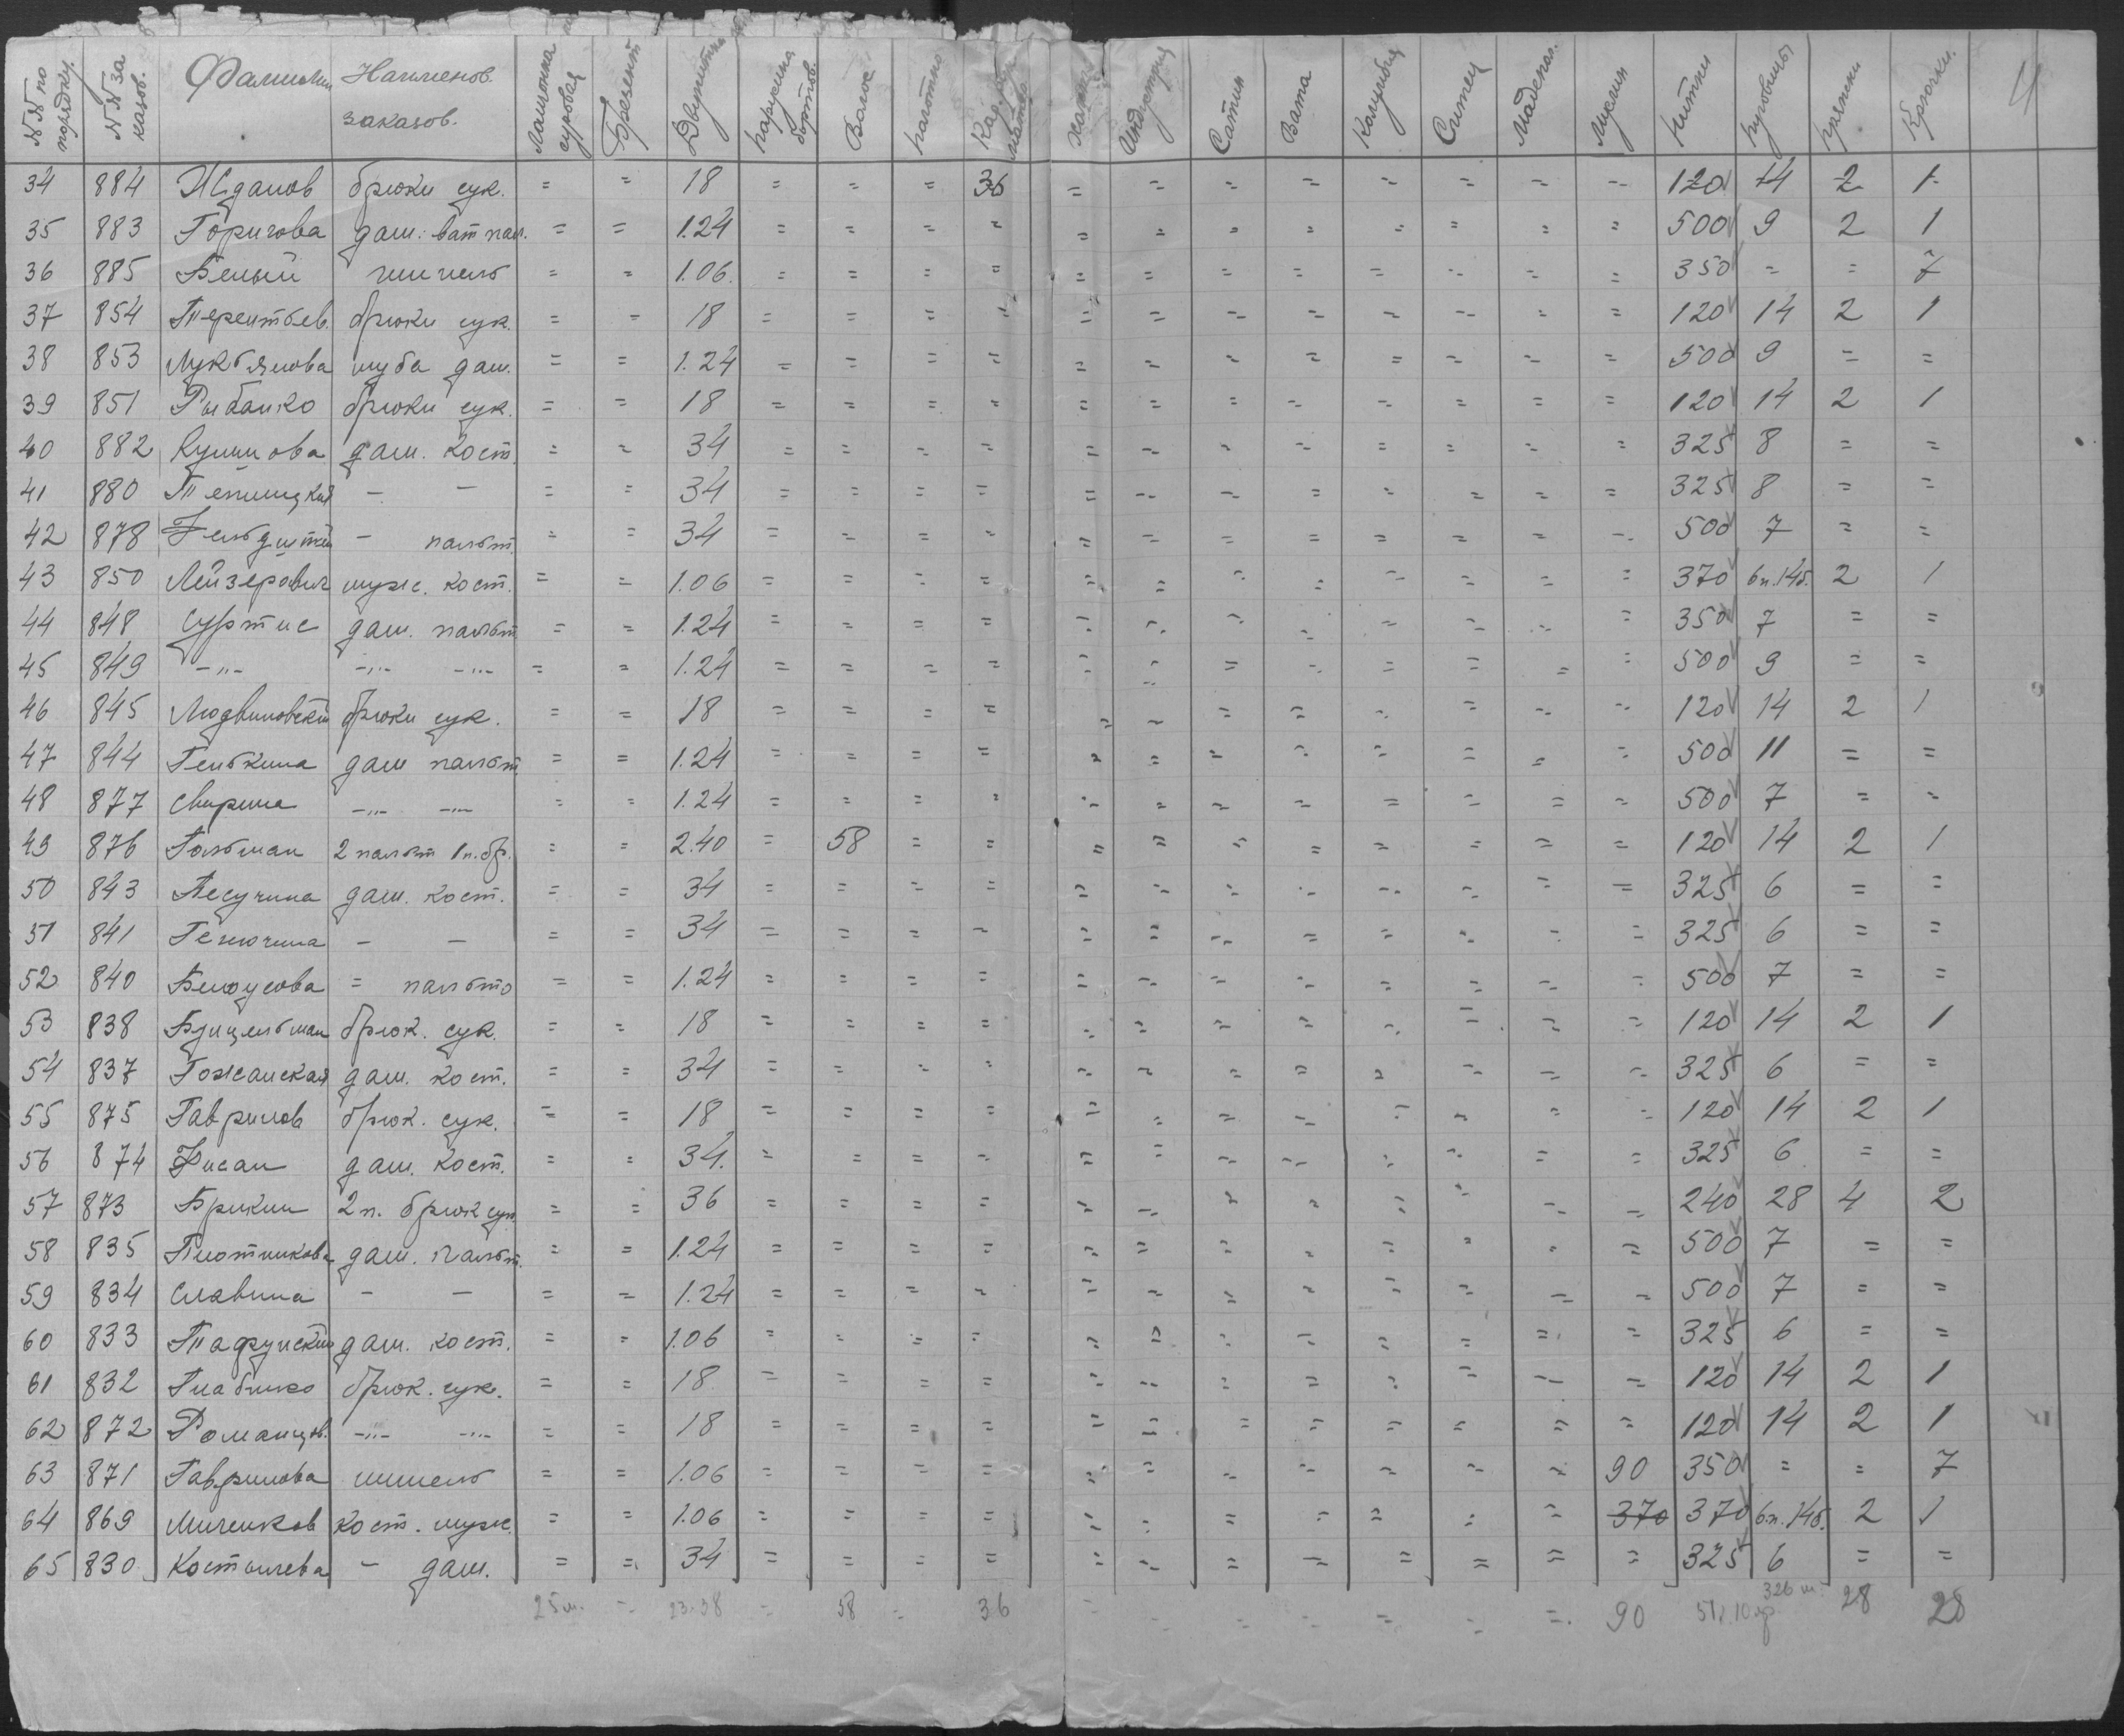 №№ по порядку. №№ заказов. Фамилия Наименов. заказов. суровая Брезент Двунитка парусина бортов. Волос полотно Индустрия Сатин Вата Коленкор Ситец Мадепол. Муслин Нитки пуговицы пряжки Крючки. 4
34 884 Жданов брюки сук. = = 18 = = = 36 = = = = = = = = 120 14 2 1
35 883 Горигова дам. ват пал. = = 1.24 = = = = = = = = = = = = 500 9 2 1
36 885 Белый шинель = = 1.06. = = = = = = = = = = = = 350 = = 7
37 854 Терентьев. брюки сук. = = 18 = = = = = = = = = = = = 120 14 2 1
38 853 Лукьянова шуба дам. = = 1.24 = = = = = = = = = = = = 500 9 = =
39 851 Рыбалко брюки сук. = = 18 = = = = = = = = = = = = 120 14 2 1
40 882 дам. кост. = = 34 = = = = = = = = = = = = 325 8 = =
41 880 - - = = 34 = = = = = = = = = = = = 325 8 = =
42 878 - пальт. = = 34 = = = = = = = = = = = = 500 7 = =
43 850 Лейзерович муж. кост. = = 1.06 = = = = = = = = = = = = 370 6п.14б. 2 1
44 848 Суртис дам. пальт. = = 1.24 = = = = = = = = = = = = 350 7 = =
45 849 -"- -"- -"- = = 1.24 = = = = = = = = = = = = 500 9 = =
46 845 Людвиновский брюки сук. = = 18 = = = = = = = = = = = = 120 14 2 1
47 844 Гелькина дам пальт = = 1.24 = = = = = = = = = = = = 500 11 = =
48 877 Свирина -"- -"- = = 1.24 = = = = = = = = = = = = 500 7 = =
49 876 Гольман 2 пальт 1п.бр. = = 2.40 = 58 = = = = = = = = = = 120 14 2 1
50 843 Песучина дам. кост. = = 34 = = = = = = = = = = = = 325 6 = =
51 841 Генючина - - = = 34 = = = = = = = = = = = = 325 6 = =
52 840 Белоусова = пальто = = 1.24 = = = = = = = = = = = = 500 7 = =
53 838 брюк. сук. = = 18 = = = = = = = = = = = = 120 14 2 1
54 837 Гожанская дам. кост. = = 34 = = = = = = = = = = = = 325 6 = =
55 875 Гаврилов брюк. сук. = = 18 = = = = = = = = = = = = 120 14 2 1
56 874 Фисан дам. кост. = = 34. = = = = = = = = = = = = 325 6 = =
57 873 Брикин 2п. брюк сук = = 36 = = = = = = = = = = = = 240 28 4 2
58 835 Плотникова дам. пальт. = = 1.24 = = = = = = = = = = = = 500 7 = =
59 834 Славина - - = = 1.24 = = = = = = = = = = = = 500 7 = =
60 833 дам. кост. = = 1.06 = = = = = = = = = = = = 325 6 = =
61 832 брюк. сук. = = 18 = = = = = = = = = = = = 120 14 2 1
62 872 Романцов. -"- -"- = = 18 = = = = = = = = = = = = 120 14 2 1
63 871 Гаврилова шинель = = 1.06 = = = = = = = = = = = 90 350 = = 7
64 869 Миченков кост. муж. = = 1.06 = = = = = = = = = = = 370 370 6.п.14б. 2 1
65 830 Костылева - дам. = = 34 = = = = = = = = = = = = 325 6 = =
25 м. = 23.38 = 58 = 36 = = = = = = = 90 326 ш. 28 28